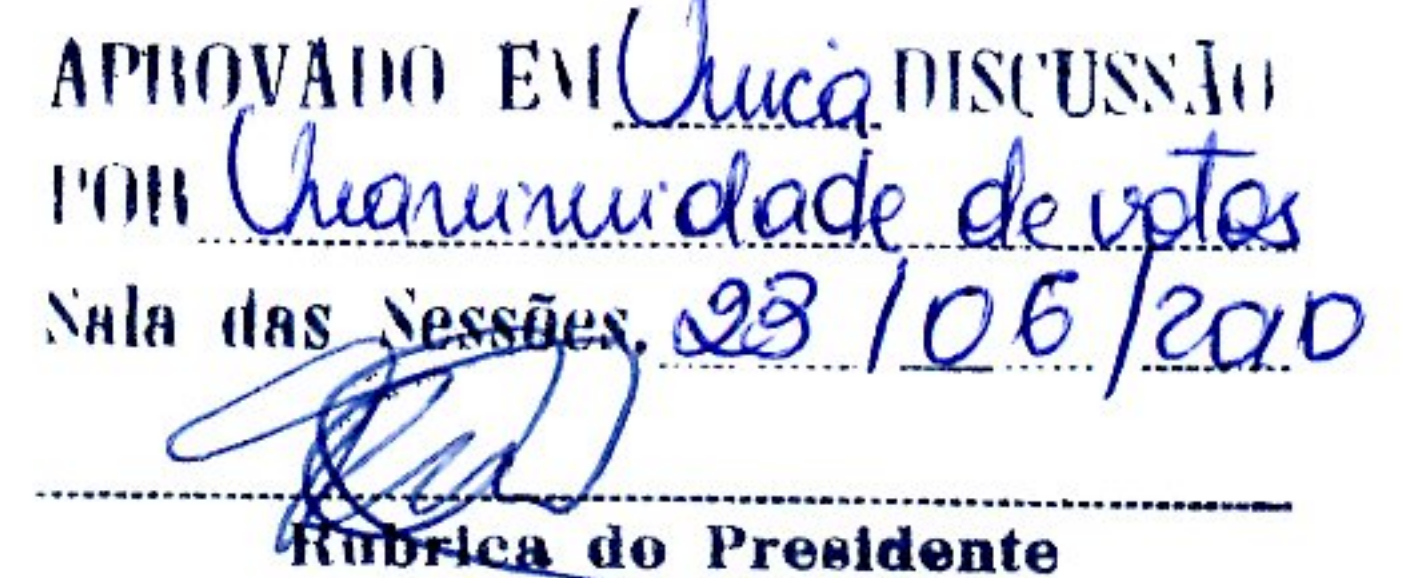 APROVADO EM Única DISCUSSÃO
POR Unanimidade de votos
Sala das Sessões, 23/06/2010
Rubrica do Presidente